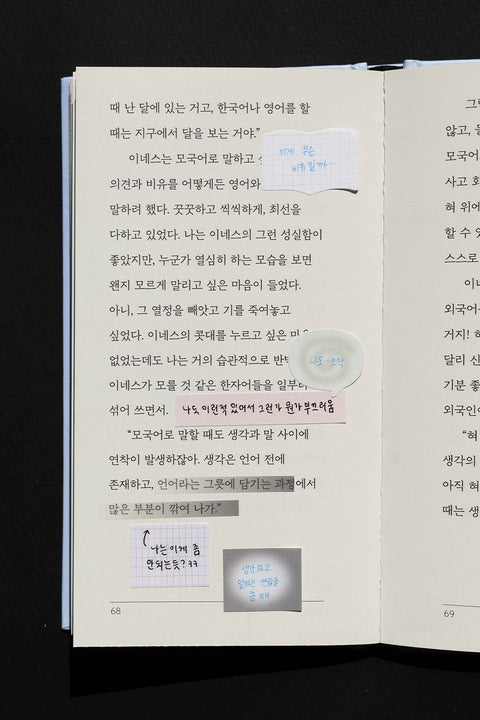 때 난 달에 있는 거고, 한국어나 영어를 할
때는 지구에서 달을 보는 거야."
이네스는 모국어로 말하고
이게 무슨
비유일까...
의견과 비유를 어떻게든 영어와
말하려 했다. 꿋꿋하고 씩씩하게, 최선을
다하고 있었다. 나는 이네스의 그런 성실함이
좋았지만, 누군가 열심히 하는 모습을 보면
왠지 모르게 말리고 싶은 마음이 들었다.
아니, 그 열정을 빼앗고 기를 죽여놓고
싶었다. 이네스의 콧대를 누르고 싶은
없었는데도 나는 거의 습관적으로
나도...으악
이네스가 모를 것 같은 한자어들을 일부러
섞어 쓰면서.
나도 이런적 있어서 그런가 뭔가 부끄러움
"모국어로 말할 때도 생각과 말 사이에
연착이 발생하잖아. 생각은 언어 전에
존재하고, 언어라는 그릇에 담기는 과정에서
많은 부분이 깎여 나가."
나는 이게 좀
안되는듯? ㅋㅋ
생각하고
말하는 연습을
좀 해
68
그
않고,
모국어
사고
혀 위에
할 수
스스로
이
외국어
거지!
달리
기분
외국인
"혀
생각의
아직
때는 생
69